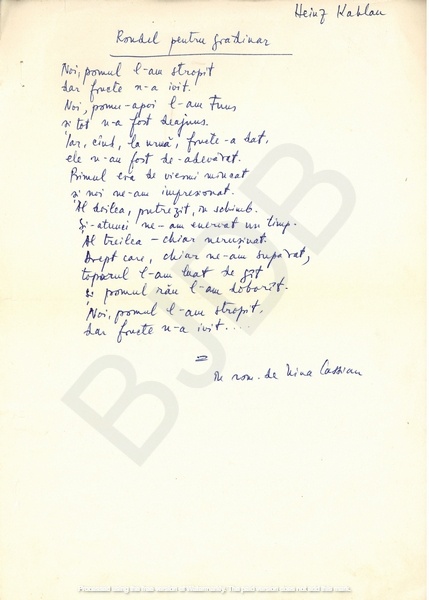 Heinz Kahlau
Rondel pentru grădinar
Noi, pomul l-am stropit
dar fructe n-a ivit.
Noi, pomu-apoi l-am tuns
și tot n-a fost deajuns.
Iar, cînd, la urmă, fructe-a dat,
ele n-au fost de-adevărat.
Primul era de viermi mîncat
și noi ne-am impresionat.
Al doilea, putrezit, în schimb.
Și-atunci ne-am enervat un timp.
Al treilea - chiar nerușinat.
Drept care, chiar ne-am supărat,
toporul l-am luat de gît
și pomul rău l-am doborît.
Noi, pomul l-am stropit,
dar fructe n-a ivit....
în rom. de Nina Cassian
BJBB